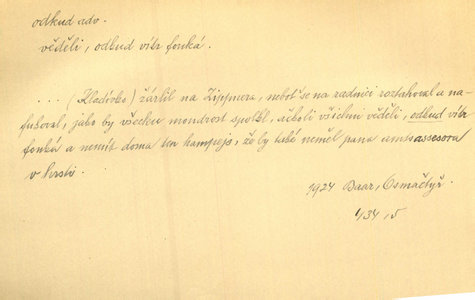 odkud adv.
věděli, odkud vítr fouká.
... (Kladívko) žárlil na Zippnera, neboť se na radnici roztahoval a na-
fukoval, jako by všecku moudrost spolkl, ačkoli všichni věděli, odkud vítr
fouká a nemít doma ten hampejs, že by také neměl pana amtsassesora
v hrsti.
1924 Baar, Osmačtyř.
434 i5